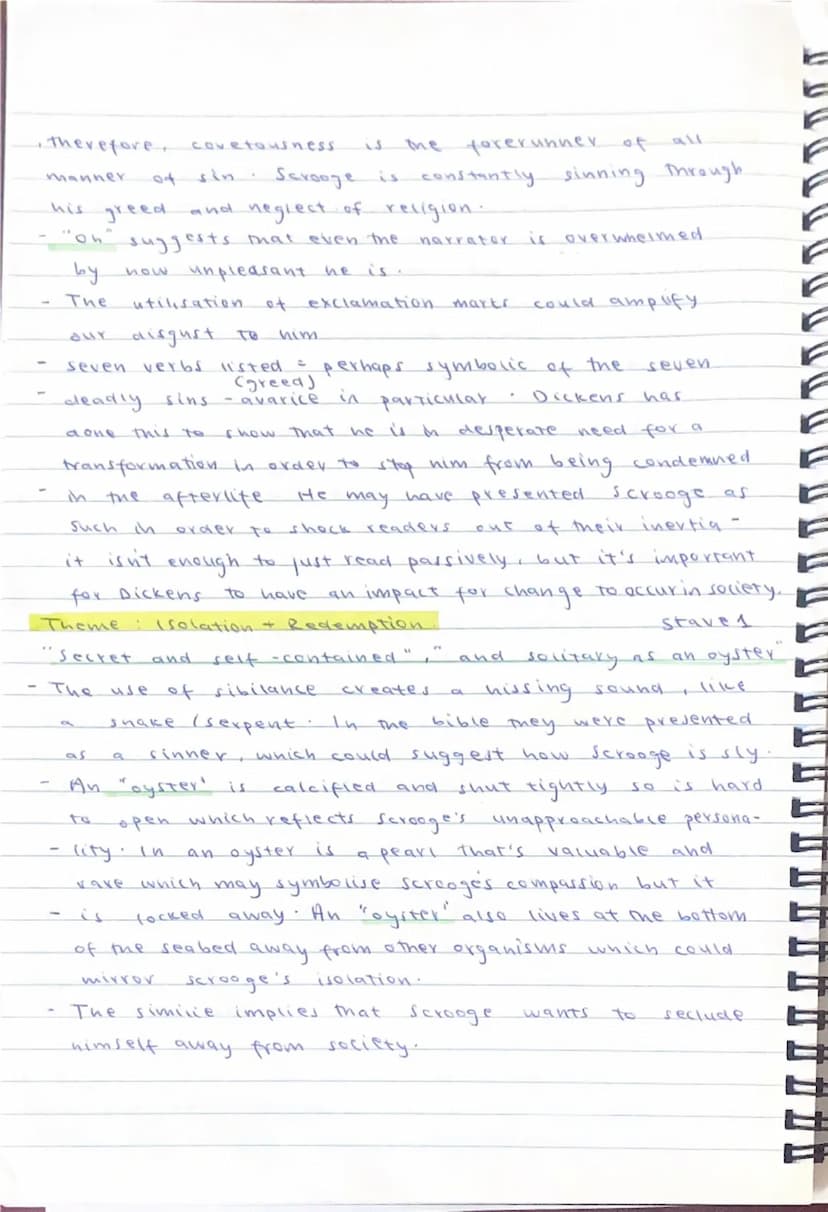 . therefore, covetousness is the forerunner of all
manner of sin. Scrooge is constantly sinning through
his greed and neglect of religion.
- "Oh" suggests that even the narrator is overwhelmed
by how unpleasant he is.
- The utilisation of exclamation marks could amplify
our disgust to him
- seven verbs listed = perhaps symbolic of the seven
(greed)
- deadly sins - avarice in particular. Dickens has
done this to show that he is in desperate need for a
transformation in order to stop him from being condemned
- in the afterlife He may have presented Scrooge as
such in order to shock readers out of their inertia -
it isn't enough to just read passively, but it's important
for Dickens to have an impact for change to occur in society.
Theme : Isolation + Redemption stave 1
"secret and self-contained", "and solitary as an oyster"
- The use of sibilance creates a hissing sound, like
a snake / serpent. In the bible they were presented
as a sinner, which could suggest how Scrooge is sly.
- An "oyster' is calcified and shut tightly so is hard
to open which reflects Scrooge's unapproachable persona-
- lity. In an oyster is a pearl that's valuable and
rare which may symbolise Scrooge's compassion but it
- is locked away. An "oyster" also lives at the bottom
of the seabed away from other organisms which could
mirror scrooge's isolation.
- The similie implies that Scrooge wants to seclude
himself away from society.